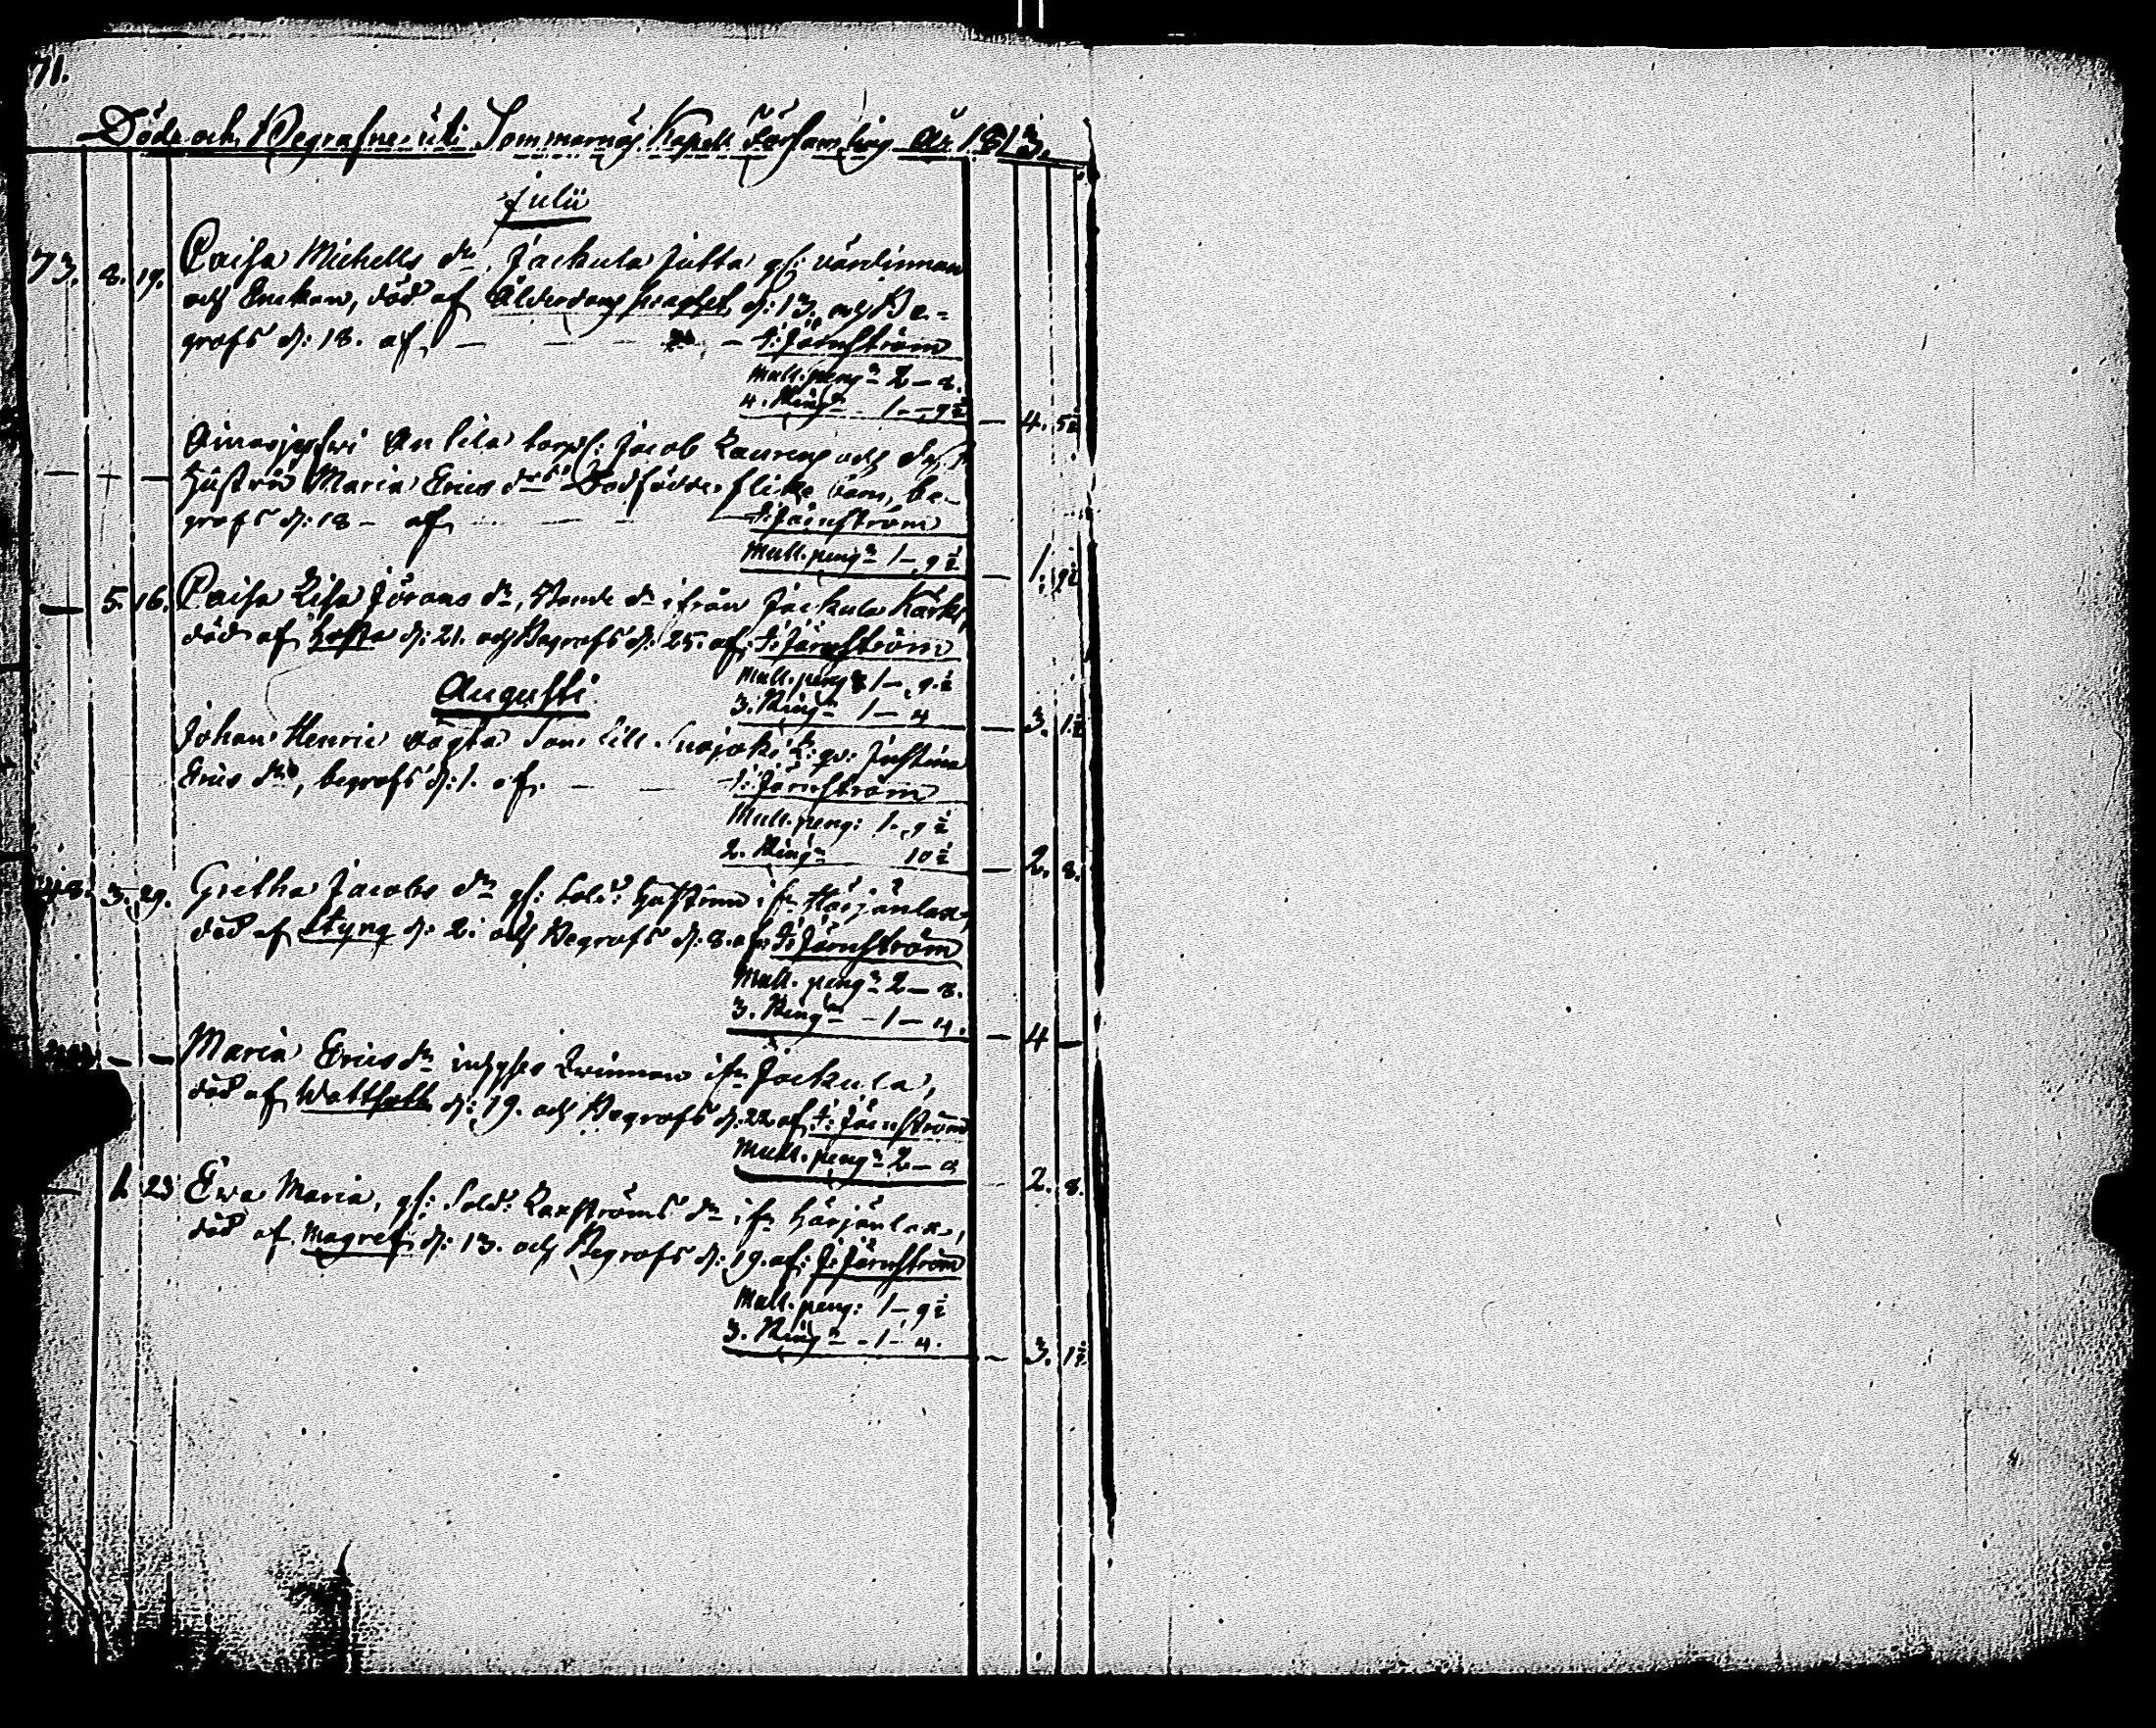 71.
Döde och Begrafne uti Sommernäs Capell Församling År 1813.
Julii
73. 8. 19. Caisa Michells dr, Jackula Jutta gf: värdinnan
och Enckan, död af Ålderdoms d: 13. och Be-
grafs d: 18. af — — — — J: Järnström
Mull.peng:r 2 — 8.
4. Ring:r 1 — 9½ — 4. 5½
Anttila torp: Jacob Laurens och des
— — — Hustru Maria Erics drs Dödfödde flicke barn, be-
grafs d: 18 — af — — — J: Järnström
Mull.peng:r 1 — 9½ — 1. 9½
— 5. 16. Caisa Lisa Jörans dr, Bonde dr ifrån Jackula
död af Hosta d: 21. och Begrafs d: 25. af J: Järnström
Mull.peng:r 1 — 9½
Augusti
3. Ring:r 1 — 4 — 3. 1½
Johan Henric oägta Son till qv: Justina
Erics dr, begrafs d: 1. af. — — J: Järnström
Mull.peng: 1. 9½
2. Ring:r 10½ — 2. 8.
48. 3. 29. Gretha Jacobs dr gf: Sold: Hustrun ifr: Härjänlax,
död af Styng d: 2. och Begrafs d: 8. af: J: Järnström
Mull.peng:r 2 — 8.
3. Ring:r — 1 — 4. — 4 —
— — Maria Erics dr inhyses Qvinnan ifr: Jackula,
död af Wattsoth d: 19. och Begrafs d: 22 af: J: Järnström
Mull.peng:r 2 — 8 — 2. 8.
— 1. 23 Ewa Maria, gf: Sold: Laxströms dr ifr: Härjänlax,
död af Magref d: 13. och Begrafs d: 19. af: J: Järnström
Mull.peng: 1 — 9½
3. Ring:r — 1 — 4. — 3. 1½